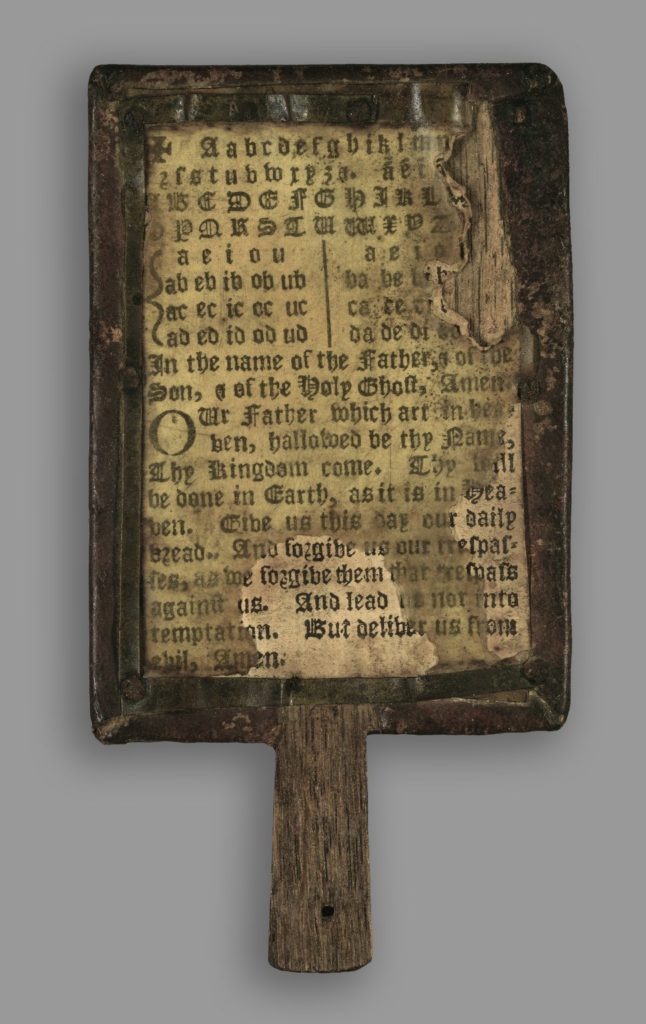 ✠ Aabcdefghiklmn
ꝛſstuvwxyz⁊. áéi
ABCDEFGHIKL
PQRSTUWXYZ
a e i o u a e i o
ab eb ib ob ub ba be bi
ac ec ic oc uc ca ce
ad ed id od ud da de di
In the name of the Father, ⁊ of the
Son, ⁊ of the Holy Ghoſt, Amen.
OUr Father which art in hea-
ven, hallowed be thy Name,
Thy Kingdom come. Thy will
be done in Earth, as it is in Hea-
ven. Give us this day our daily
bꝛead. And foꝛgive us our treſpaſ-
ſes, as we foꝛgive them that treſpaſs
againſt us. And lead us not into
temptation. But deliver us from
evil, Amen.